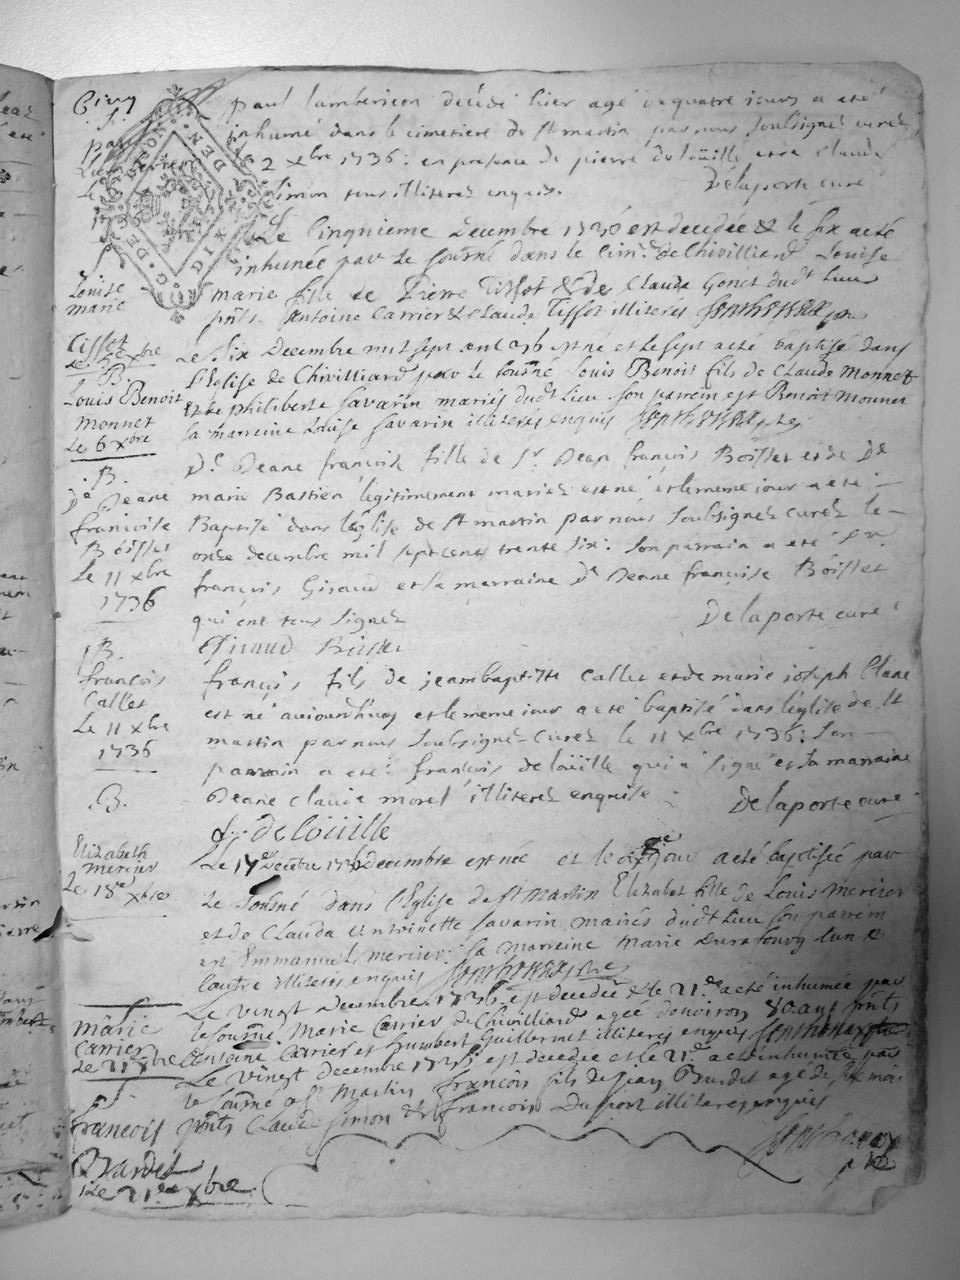 paul lambericon decédé hier agé de quatre jours a eté
inhumé dans le cimetiere de st martin par nous soubsigné curé
2 xbre 1736: en presence de pierre de loüille et de claude
simon tous illiterez enquis.
Delaporte curé
Le Cinquieme Decembre 1736 est decedée & le six a eté
inhumée par le sousné dans le Cimre de Chivilliard Louise
Louise
marie
Tissot
Le 5e xbre
marie fille de Pierre Tissot & de Claude Gonet dudt lieu
pnts Antoine Carrier & Claude Tissot illiterés
B.
Louis Benoit
Monnet
Le 6 xbre
Le Six Decembre mil sept cent 036 est né et le sept a eté baptisé dans
L'Eglise de Chivilliard par le sousné Louis Benoit fils de Claude Monnet
et de philiberte Savarin mariés dudt Lieu. son parrein est Benoit Monnet
la marreine Louise Savarin illiterés enquis
B.
De Jeane
francoise
Boisset
Le 11 xbre
1736
De Jeane francoise fille de Sr Jean françois Boisset et de De
marie Bastien légitimement mariez est né et le meme jour a eté
Baptisé dans léglise de st martin par nous soubsigné curé le
onze decembre mil sept cent trente six: son parrain a eté Sr
françois Giraud et la marraine De Jeane francoise Boisset
qui ont tous signez
Delaporte curé
Giraud
B.
françois
Callet
Le 11 xbre
1736
françois fils de jeambaptiste Callet et de marie joseph Clane
est né aujourd'huy et le meme jour a eté baptisé dans léglise de st
martin par nous soubsigné curé le 11 xbre 1736: son
parrain a eté françois de loüille qui a signé et sa marraine
Jeane claude morel illiterez enquise
Delaporte curé
fr: de loüille
B.
Elizabeth
mercier
Le 18e xbre
Decembre est née et le jour a eté baptisée par
Le sousné dans l'Eglise de st Martin Elizabet fille de Louis Mercier
et de Clauda Antoinette Savarin mariés dudt Lieu son parrein
est Emmanuel mercier: sa marreine Marie Durafourg l'un &
l'autre illiterés enquis
marie
Carrier
Le 21 xbre
Le vingt Decembre 1736 est decedée & le 21e a eté inhumée par
le sousné Marie Carrier de Chivilliard agée d'environ 80 ans pnts
Antoine Carrier et humbert Guillermet illiterés enquis
S.
francois
Bardet
Le 21e xbre
Le vingt Decembre 1736 est decedée et le 21e a eté inhumée par
le sousné a st Martin francois fils de jean Burdet agé de mois
pnts Claude simon & francois Dupont illiterés enquis